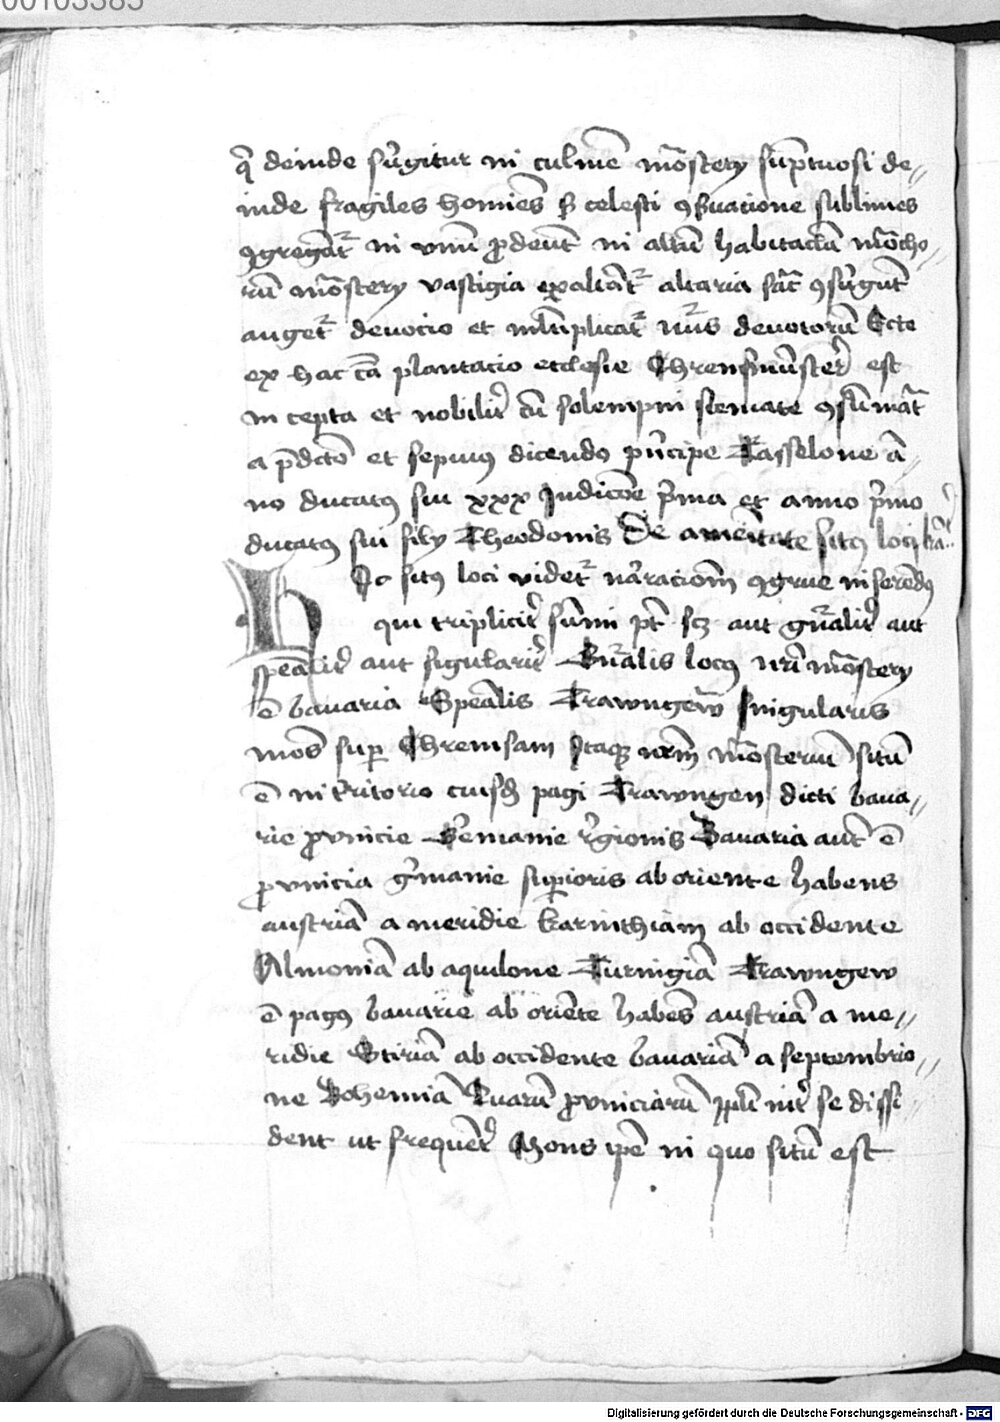 00103385
q̄ deinde surgitur in culmē mōstery sūptuosi de„
inde fragiles homīes ꝑ celesti ꝯsuacione sublimes
ꝯgregant̄ in vnū ꝓdeūt in altū habitacłm mōcho„
rū mōstery vastigia exaltāt̄ altaria sāct ꝯsurgūt
auget̄ devocio et mltiplicat̄ nūs devotorū Ecce
ex hac cā plantacio ecclesie Chremsmūster̄ est
in cepta et nobilit̄ cū solempni stemate ꝯsūmāt
a p̄dcō et sepius dicendo p̄ncipe Tassilone ā„
no ducatus sui xxx Judiccōe p̄ma et anno p̄mo
ducatus sui fily Theodonis De amenitate situs loci
Ic situs loci videt̄ narracioni ꝯgrue inserēdus
qui triplicit̄ sūmi pt̄ scz aut gn̄alit̄ aut
spēalit̄ aut sigularit̄ Gn̄alis locus nr̄i mōstery
ē bavaria Spēalis Trawngew Singularis
mōs sup̄ Chremsam Itaqꝫ nr̄m mōsteriū sitū
ē in tritorio cuiusdā pagi Trawngew dicti bava„
rie ꝓvincie Germanie regionis Bavaria aut̄ ē
ꝓvincia germanie superioris ab oriente habens
austriā a meridie karinthiam ab occidente
Almoniā ab aquilone Turingiā Trawngew
ē pagus bavarie ab oriēte habēs austriā a me„
ridie Stiriā ab occidente bavariā a septembrio„
ne Bohemiā Quarū ꝓvinciarū ppli int̄ se dissi„
dent ut frequēt̄ Mons ipē in quo sitū est
Digitalisierung gefördert durch die Deutsche Forschungsgemeinschaft - DFG